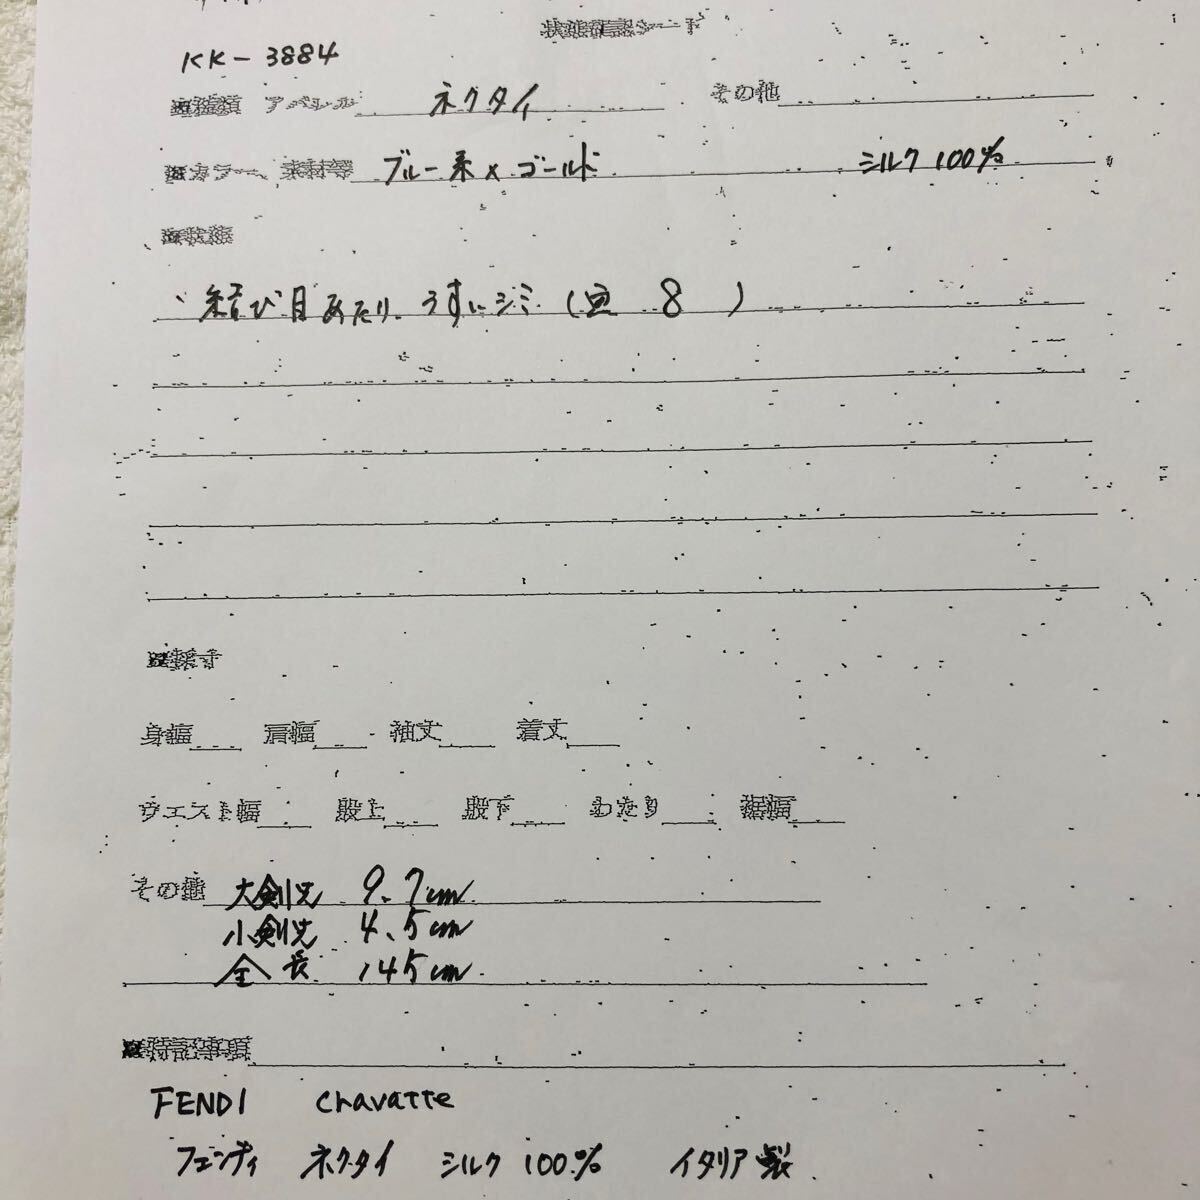 状態確認シート
KK-3884
■種類 アパレル ネクタイ その他
■カラー、素材等 ブルー系×ゴールド シルク100%
■状態
、結び目あたり、うすいシミ( 8 )
■採寸
身幅 肩幅 袖丈 着丈
ウエスト幅 股上 股下 わたり 裾幅
その他 大剣先 9.7cm
小剣先 4.5cm
全長 145cm
■特記事項
FENDI Cravatte
フェンディ ネクタイ シルク100% イタリア製